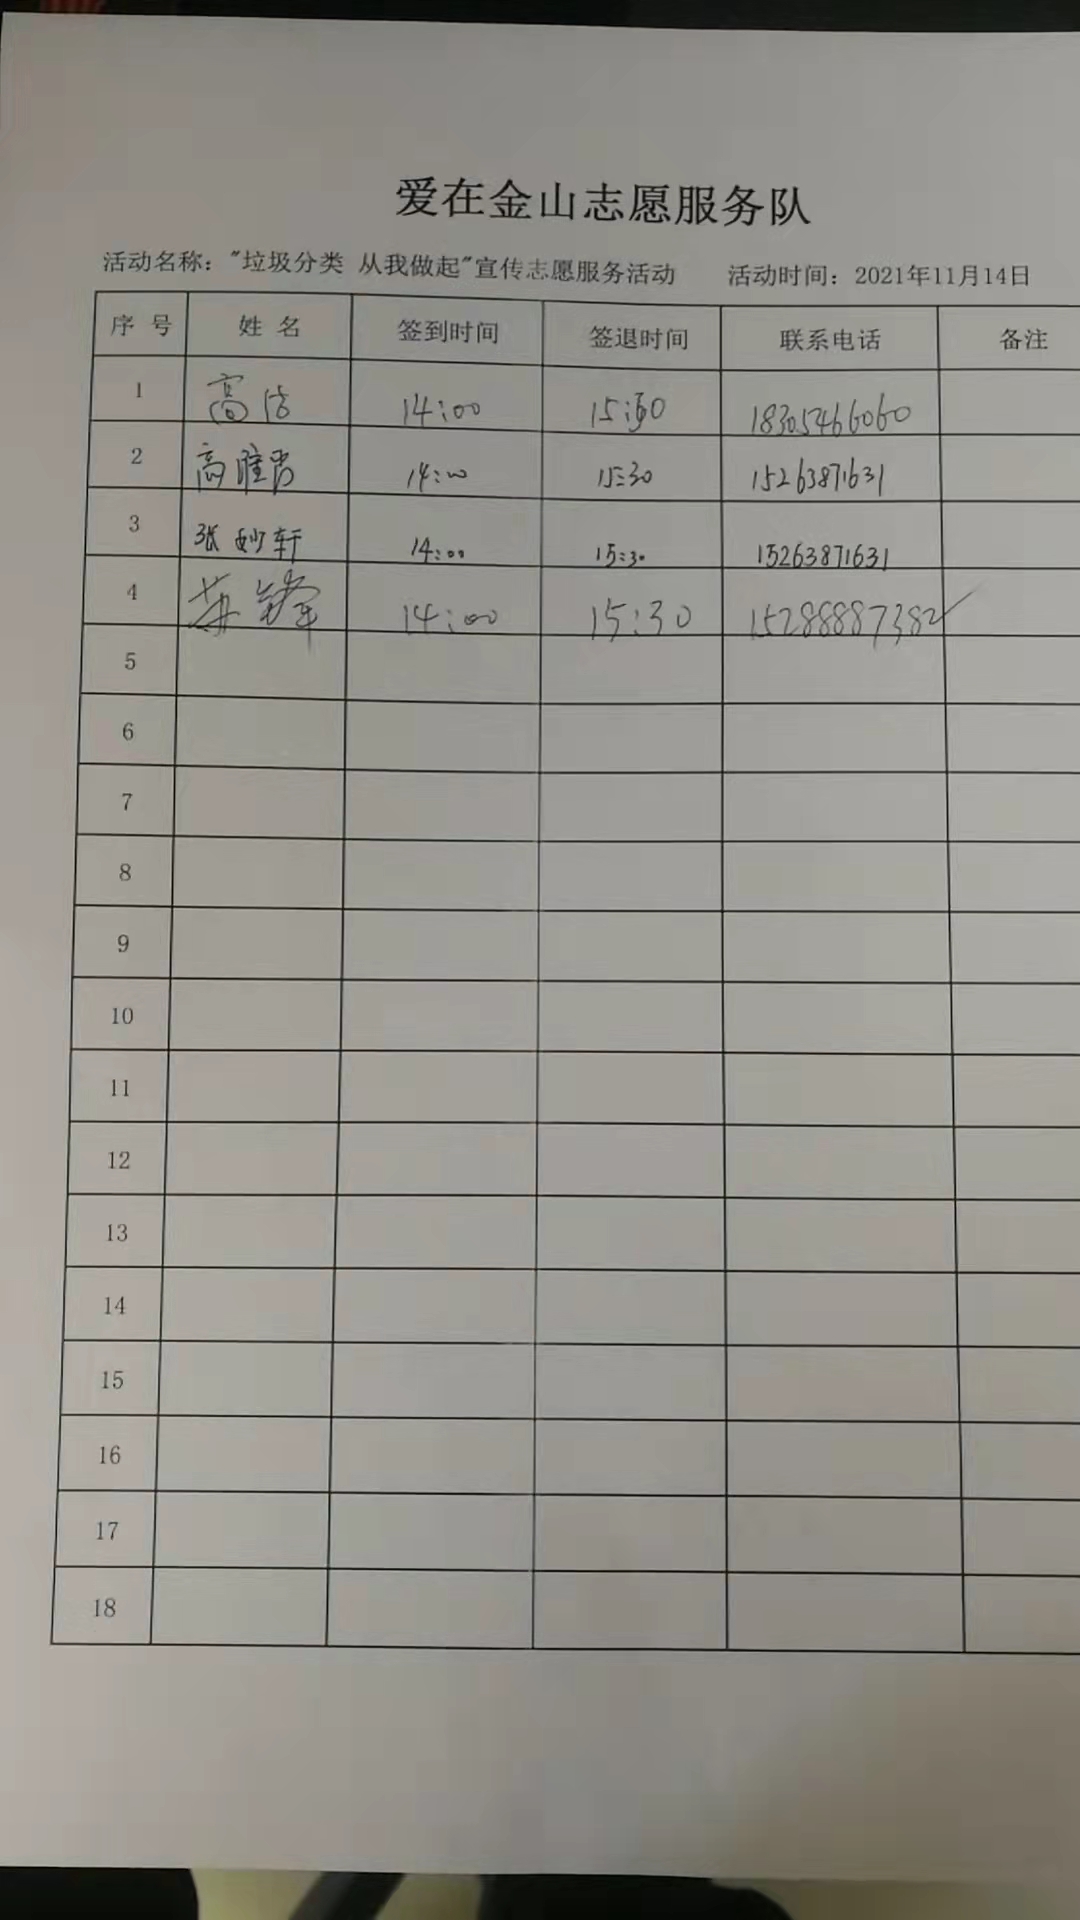 爱在金山志愿服务队
活动名称："垃圾分类 从我做起"宣传志愿服务活动 活动时间：2021年11月14日
序 号 姓 名 签到时间 签退时间 联系电话 备注
1 高洁 14:00 15:30 18305466060
2 高 14:00 15:30 15263871631
3 张妙轩 14:00 15:30 15263871631
4 14:00 15:30 15288887382
5
6
7
8
9
10
11
12
13
14
15
16
17
18